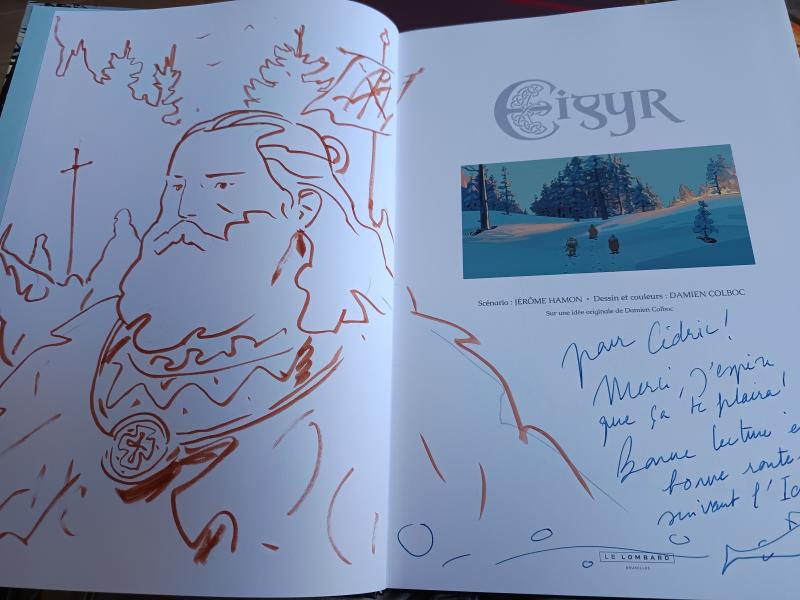 Eigyr
Scénario : JÉRÔME HAMON • Dessin et couleurs : DAMIEN COLBOC
Sur une idée originale de Damien Colboc
pour Cédric !
Merci, J'espère
que ça te plaira !
Bonne lecture e
bonne route
suivant l'Ic
LE LOMBARD
BRUXELLES